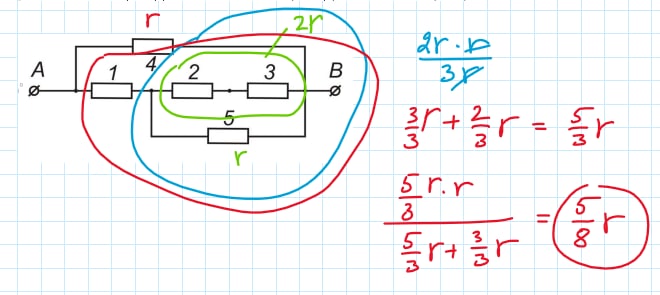 r
2r
A 1 4 2 3 B
5
r
2r · r
3r
3/3 r + 2/3 r = 5/3 r
5/3 r · r
= 5/8 r
5/3 r + 3/3 r